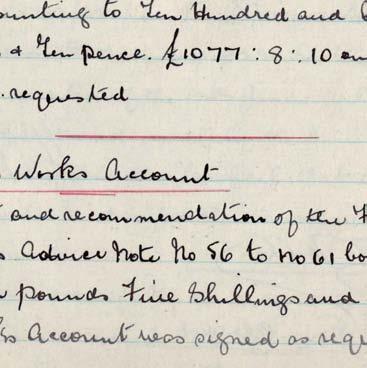 unting to Ten Hundred and
& Ten pence. £1077:8:10 on
requested
Works Account
and recommendation of the F
Advice Note No 56 to No 61 bo
pounds Five Shillings and
Account was signed as requ